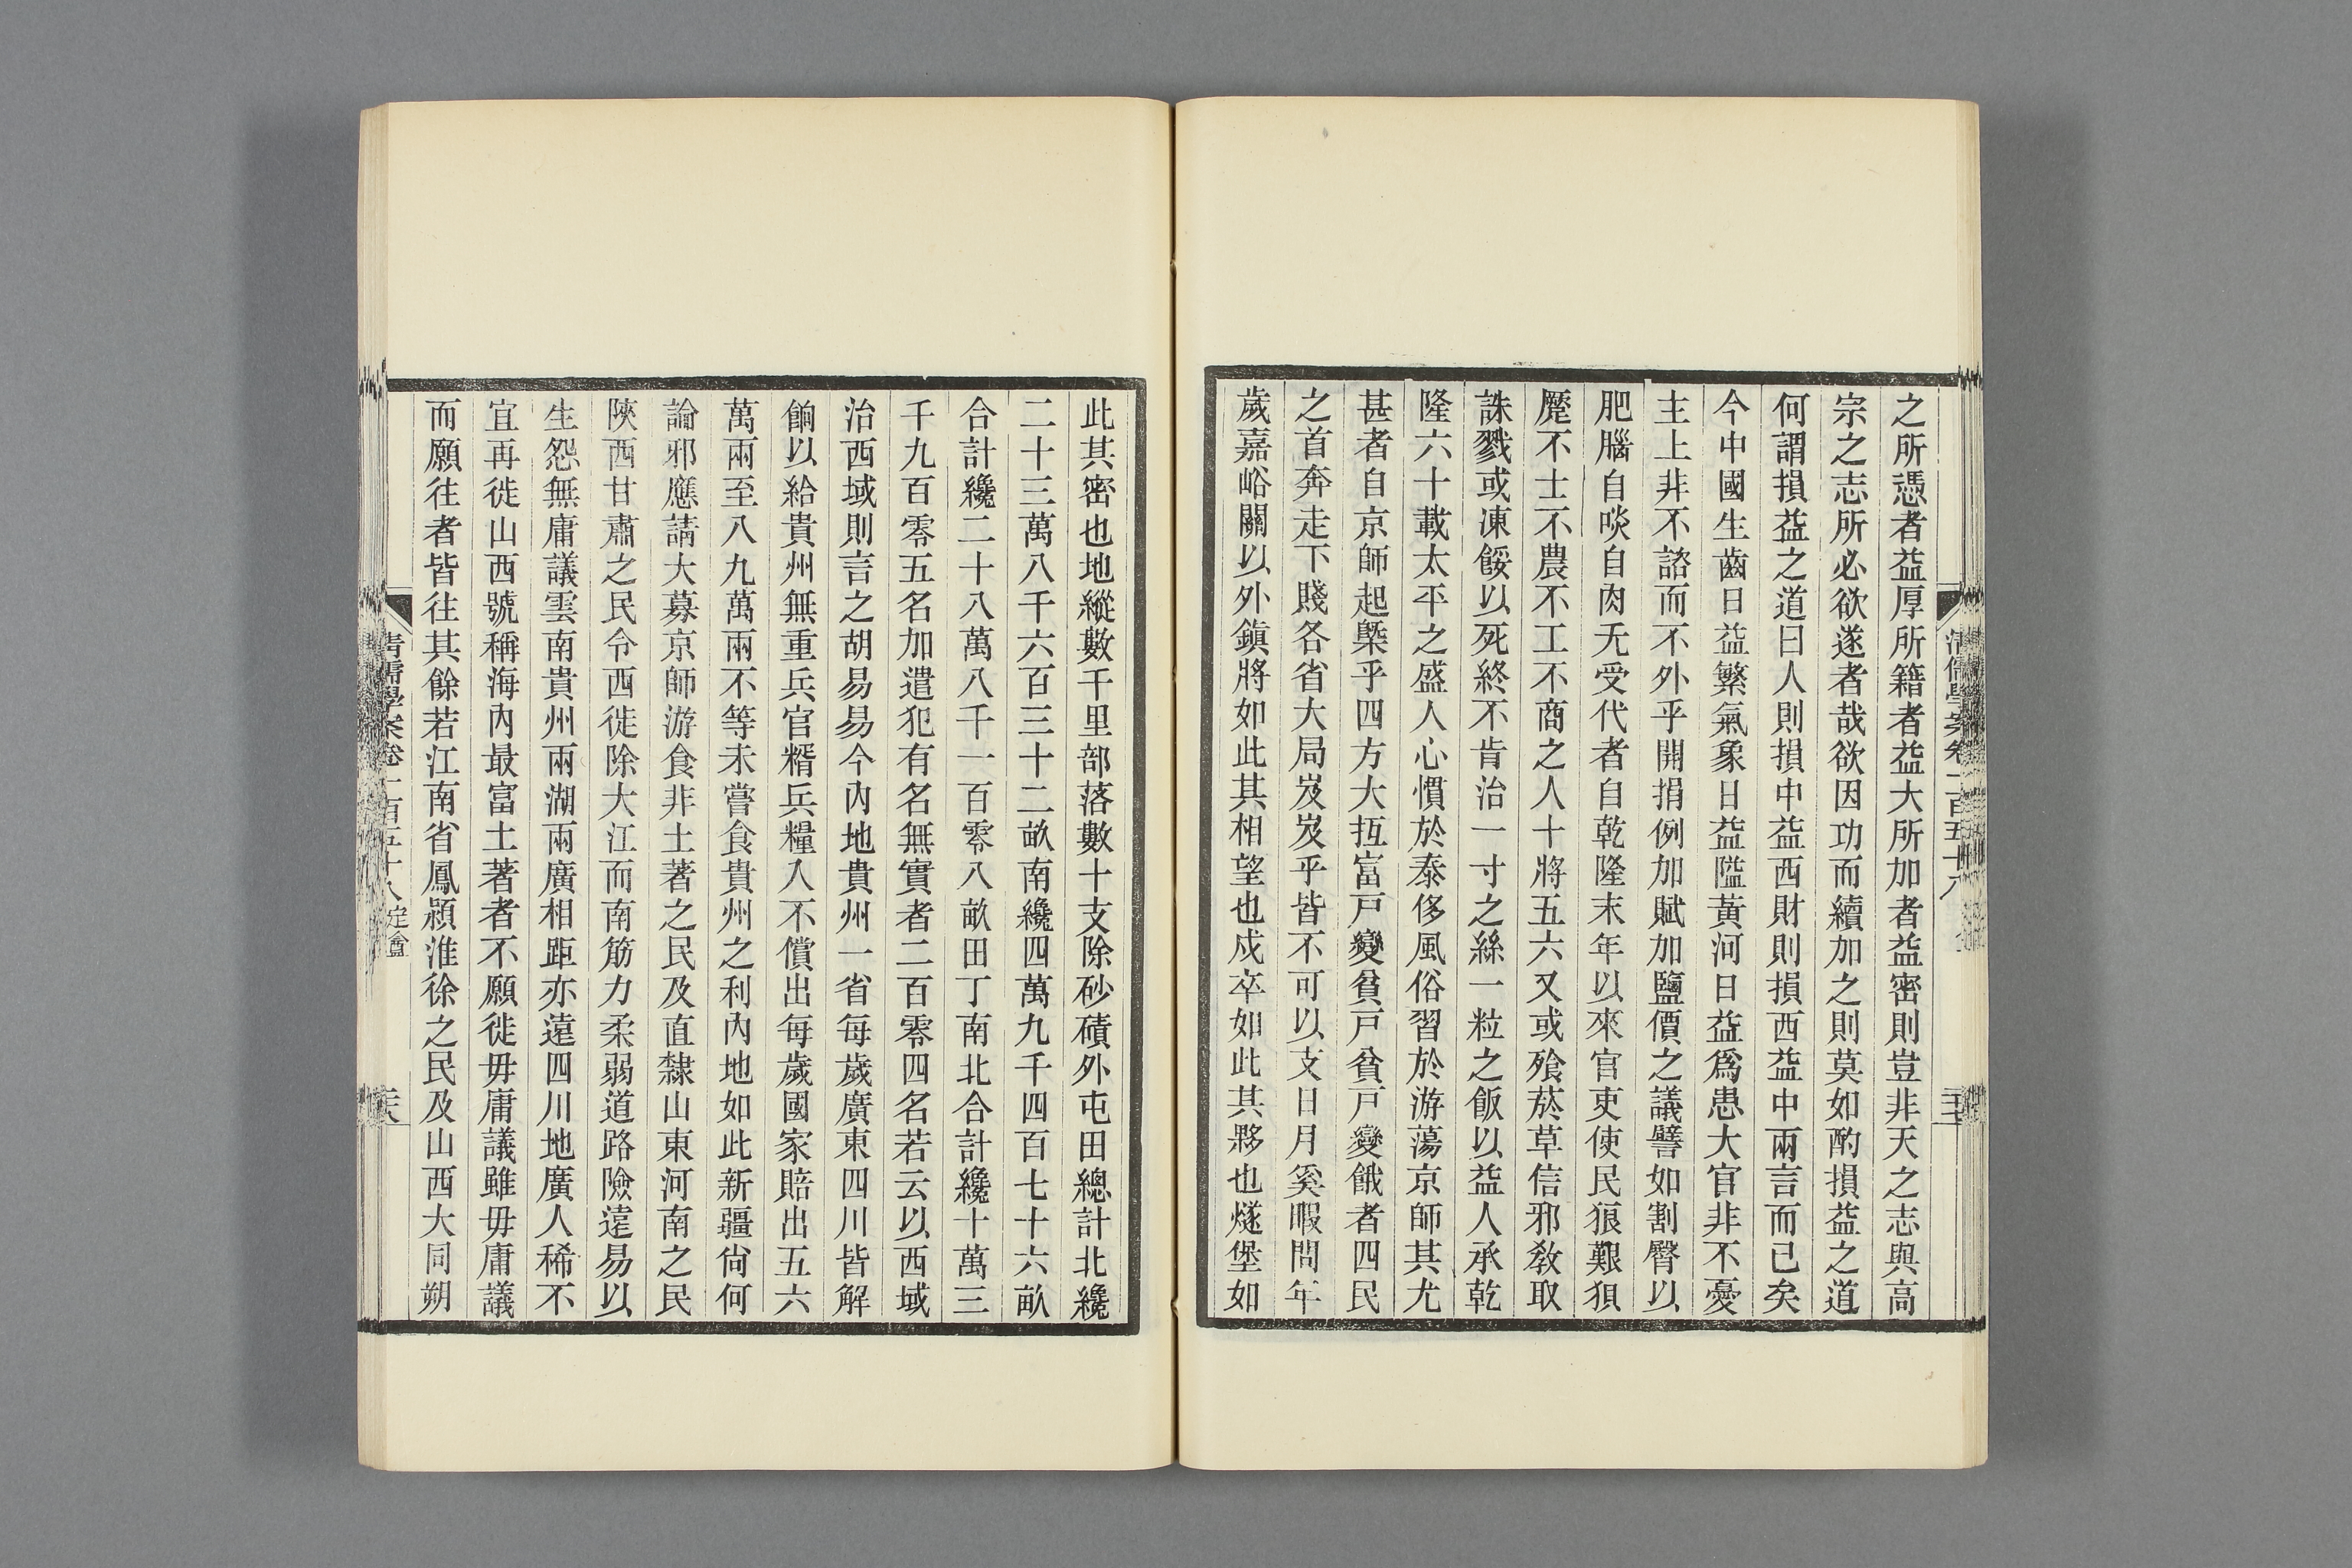 之所憑者益厚所籍者益大所加者益密則豈非天之志與高
宗之志所必欲遂者哉欲因功而續加之則莫如酌損益之道
何謂損益之道曰人則損中益西財則損西益中兩言而已矣
今中國生齒日益繁氣象日益隘黃河日益爲患大官非不憂
主上非不諮而不外乎開捐例加賦加鹽價之議譬如割臀以
肥腦自啖自肉无受代者自乾隆末年以來官吏使民狼艱狽
蹷不士不農不工不商之人十將五六又或飱菸草信邪敎取
誅戮或凍餒以死終不肯治一寸之絲一粒之飯以益人承乾
隆六十載太平之盛人心慣於泰侈風俗習於游蕩京師其尤
甚者自京師起槩乎四方大抵富戸變貧戸貧戸變餓者四民
之首奔走下賤各省大局岌岌乎皆不可以支日月奚暇問年
歲嘉峪關以外鎭將如此其相望也戍卒如此其夥也燧堡如
此其密也地縱數千里部落數十支除砂磧外屯田總計北纔
二十三萬八千六百三十二畝南纔四萬九千四百七十六畝
合計纔二十八萬八千一百零八畝田丁南北合計纔十萬三
千九百零五名加遣犯有名無實者二百零四名若云以西域
治西域則言之胡易易今內地貴州一省每歲廣東四川皆解
餉以給貴州無重兵官糈兵糧入不償出每歲國家賠出五六
萬兩至八九萬兩不等未嘗食貴州之利內地如此新疆尙何
論邪應請大募京師游食非土著之民及直隸山東河南之民
陝西甘肅之民令西徙除大江而南筋力柔弱道路險遠易以
生怨無庸議雲南貴州兩湖兩廣相距亦遠四川地廣人稀不
宜再徙山西號稱海內最富土著者不願徙毋庸議雖毋庸議
而願往者皆往其餘若江南省鳳潁淮徐之民及山西大同朔
淸儒學案卷一百五十八 定盦